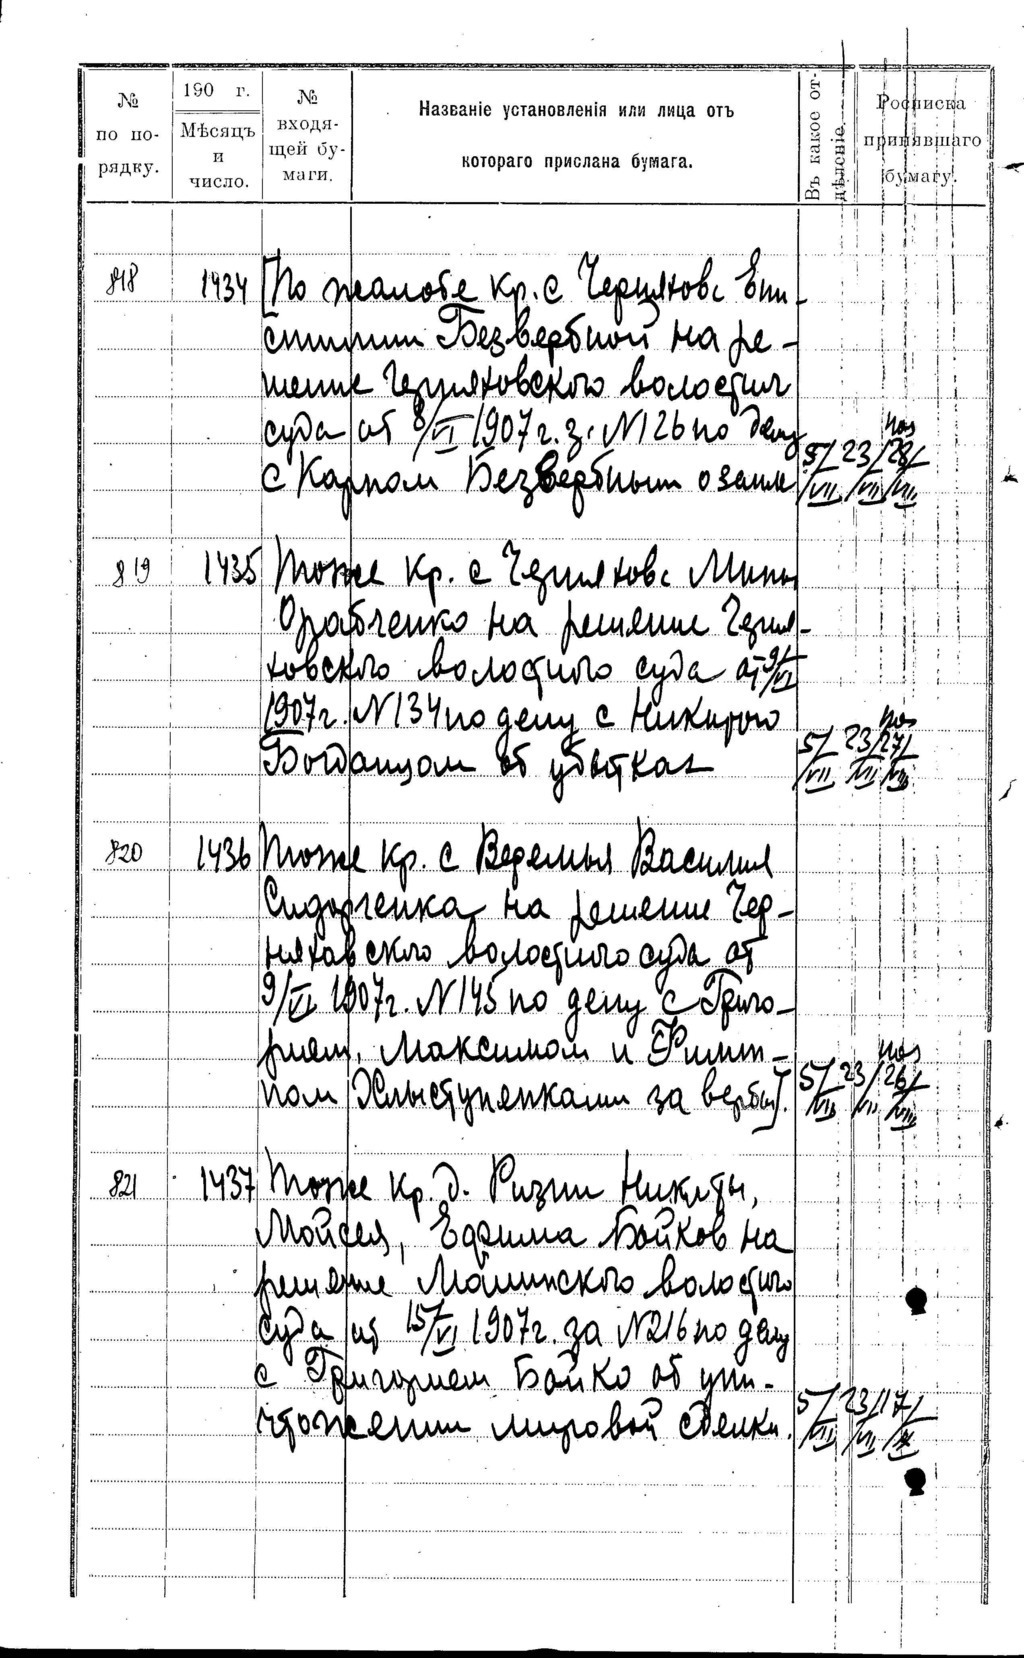 № по порядку.
190 г.
Мѣсяцъ и число.
№ входящей бумаги.
Названіе установленія или лица отъ
котораго прислана бумага.
Въ какое отдѣленіе.
Росписка принявшаго бумагу.
818 1434 По жалобе кр. с Черняхов
Безвербной на ре-
шение Черняховского волостн
суда от 8/VI 1907 г. з. N126 по делу
с Карпом Безвербным о земле 5/VII 23/VII 28/VIII
819 1435 Тоже кр. с Черняхов
на решение Черня-
ховского волостного суда от 9/VI
1907 г. N134 по делу с
Богданцом об убытках 5/VII 23/VII 27/VIII
820 1436 Тоже кр. с Веремья Василия
Сидорченка на решение Чер-
няховского волостного суда от
9/VI 1907 г. N145 по делу с Григо-
рием, Максимом и Филип-
пом за вербы]. 5/VII 23/VII 26/VIII
821 1437 Тоже кр. д. Никиты,
Мойсея, Ефима Бойков на
решение волостного
суда от 15/VI 1907 г. за N216 по делу
с Григорием Бойко об уни-
чтожении мировой сделки. 5/VII 23/VII